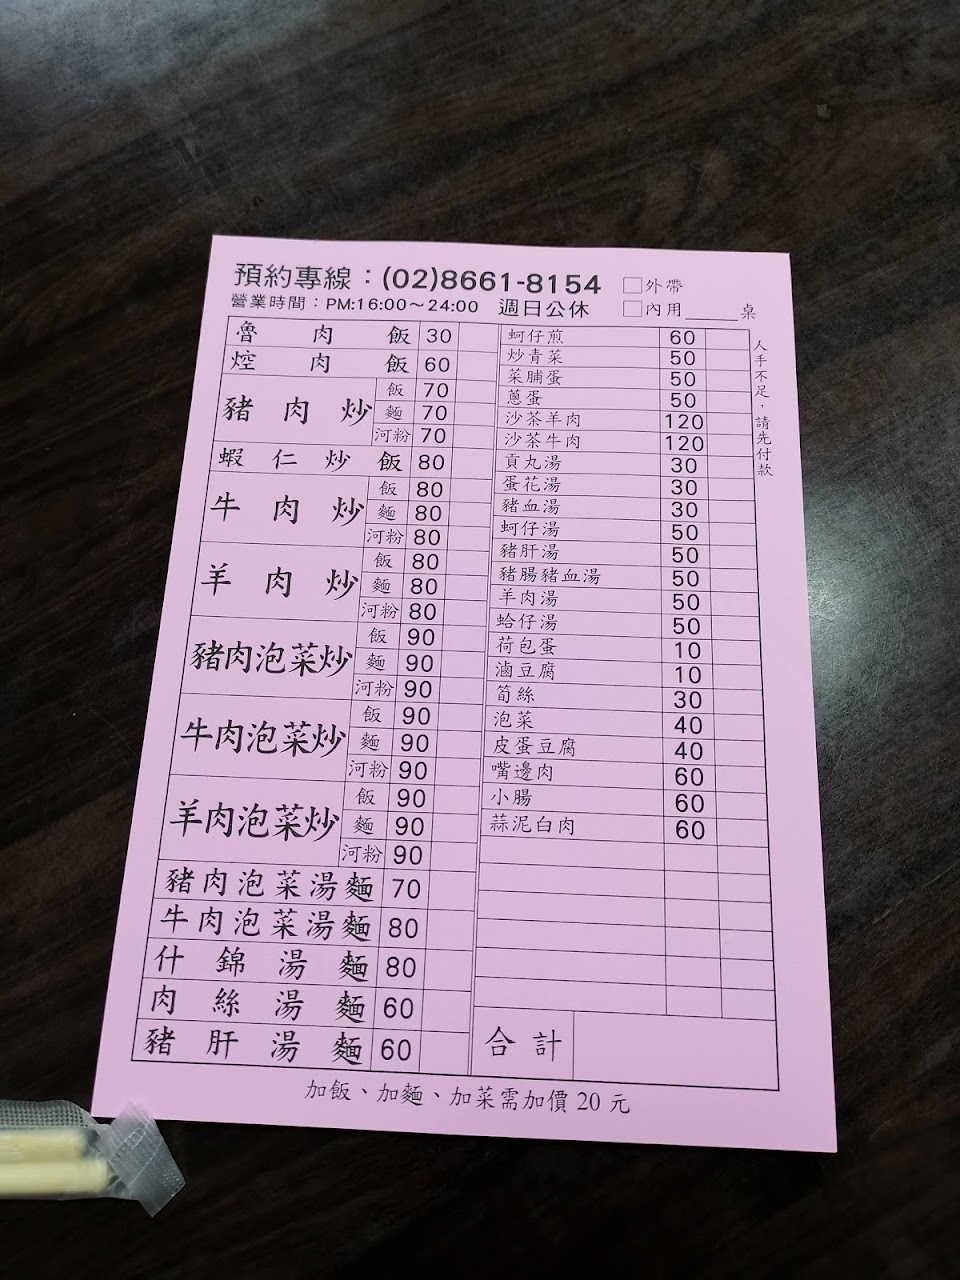 預約專線：(02)8661-8154
營業時間：PM:16:00～24:00 週日公休
□外帶
□內用_____桌
魯肉飯 30
焢肉飯 60
豬肉炒 飯 70
麵 70
河粉 70
蝦仁炒飯 80
牛肉炒 飯 80
麵 80
河粉 80
羊肉炒 飯 80
麵 80
河粉 80
豬肉泡菜炒 飯 90
麵 90
河粉 90
牛肉泡菜炒 飯 90
麵 90
河粉 90
羊肉泡菜炒 飯 90
麵 90
河粉 90
豬肉泡菜湯麵 70
牛肉泡菜湯麵 80
什錦湯麵 80
肉絲湯麵 60
豬肝湯麵 60
蚵仔煎 60
炒青菜 50
菜脯蛋 50
蔥蛋 50
沙茶羊肉 120
沙茶牛肉 120
貢丸湯 30
蛋花湯 30
豬血湯 30
蚵仔湯 50
豬肝湯 50
豬腸豬血湯 50
羊肉湯 50
蛤仔湯 50
荷包蛋 10
滷豆腐 10
筍絲 30
泡菜 40
皮蛋豆腐 40
嘴邊肉 60
小腸 60
蒜泥白肉 60
合計
人手不足，請先付款
加飯、加麵、加菜需加價 20 元